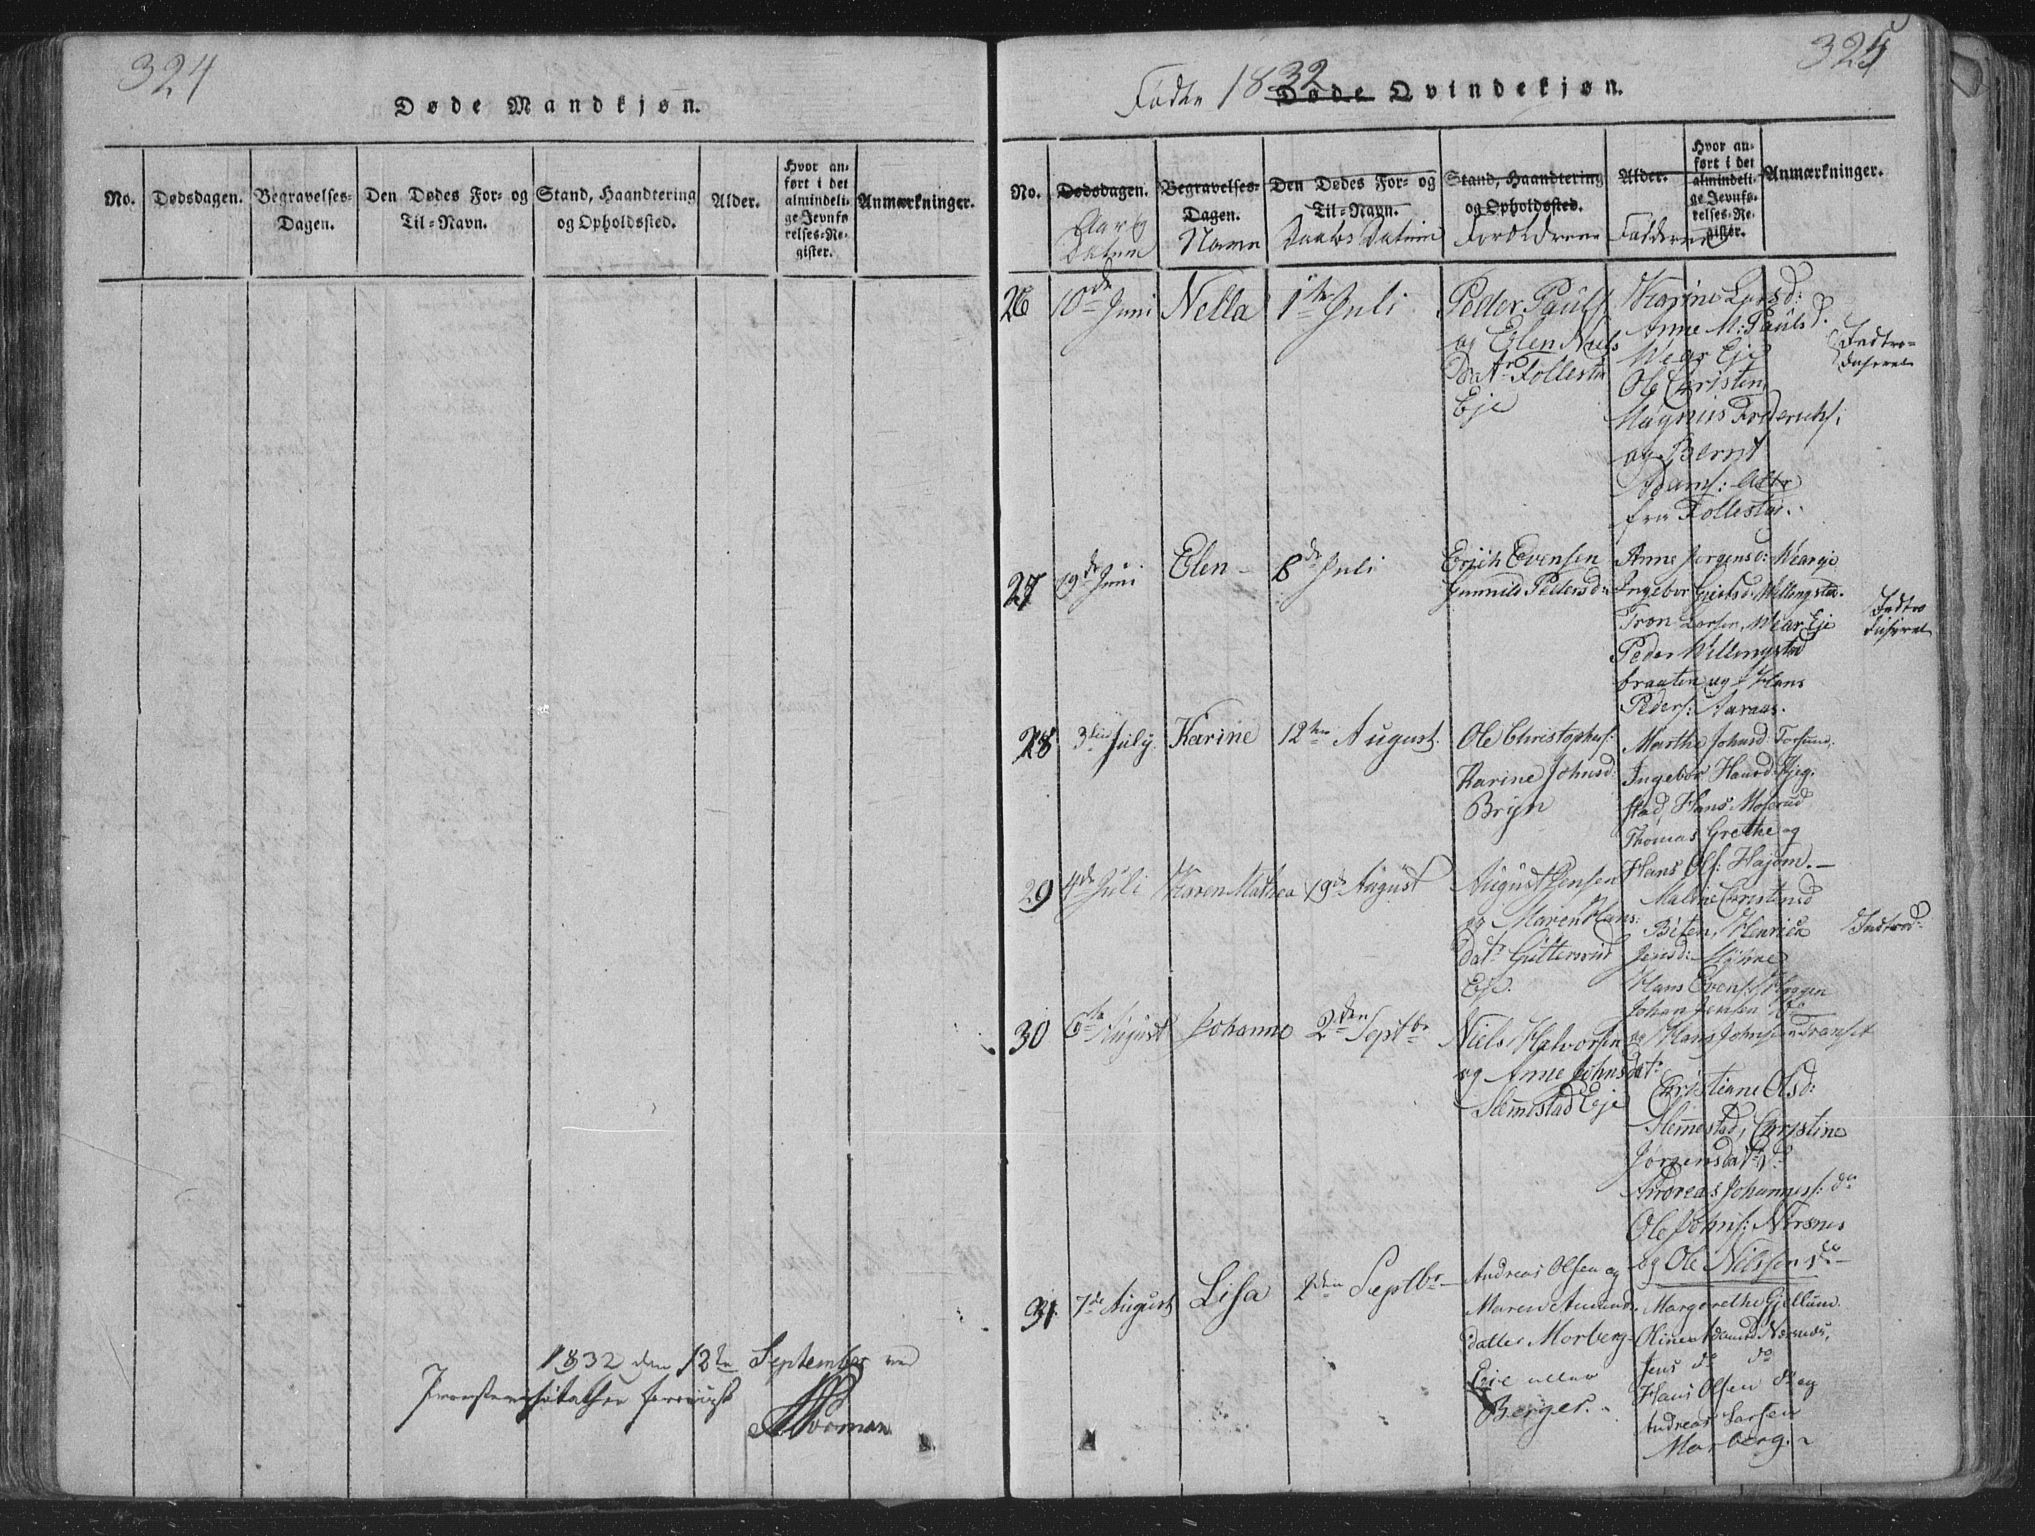 324
Døde Mandkjøn.
No.
Dødsdagen.
Begravelses-
Dagen.
Den Dødes For- og
Til-Navn.
Stand, Haandtering
og Opholdssted.
Alder.
Hvor an-
ført i det
almindeli-
ge Jevnfø-
relses-Re-
gister.
Anmærkninger.
1832 den 12te September ved
325
Fødte 1832 Døde Qvindekjøn.
No.
Dødsdagen.
Aar og
Datum
Begravelses-
Dagen.
Navn
Den Dødes For- og
Til-Navn.
Daabs Datum
Stand, Haandtering
og Opholdssted.
Forældrene
Alder.
Fadderne
Hvor an-
ført i det
almindeli-
ge Jevnfø-
relses-Re-
gister.
Anmærkninger.
26
10de Juni
Nella
1te Juli
Peder Pauls:
og Elen Niels
datr Follestad
Eje
Karine Larsd:
Anne M: Paulsd.
Wear Eje
Ole Christen,
Magnus Frederichs:
og Bernt
Adams: Alle
fra Follestad.
Introduseret
27
19de Juni
Elen
8de Juli
Erich Evensen
Gunnild Pedersd:
Anne Jørgensd: Weareje
Ingebor Gjertsd: Willingstad.
Tron Larsen, Wear Eje
Peder Willingstad
braaten og Hans
Peders: Aaraas.
Introduseret
28
3die July.
Karine
12te August.
Ole Christophers:
Karine Johnsd:
Bryn
Marthe Johnsd:
Ingebor Hansd:
stad, Hans Moserud
Thomas Grethe og
Hans Ols: Hajom.
29
4de Juli
Karen Mathea
19de August
August Jensen
og Maren Hans:
datr Gütterud
Eje.
Malene Christensd
Henrica
Jensd:
Hans Evens:
Johan Jensen do
og Hans Johnsen Transet
Introd:
30
6te August
Johanne
2den Septbr
Niels Halvorsen
og Anne Johnsdatr
Slemmestad Eje
Christiane Olsd:
Slemmestad, Christine
Jørgensdatr do
Andreas Johanness: do
Ole Johns: Nersnes
og Ole Nilssen do
31
7de August
Lisa
2den Septbr
Andreas Olsen og
Maren Amunds
datter Morberg
Eje eller
Berger.
Margarethe Gjellum.
Oline Adamsd Nærsnæs,
Jens do do
Hans Olsen do og
Andreas Larsen
Morberg.